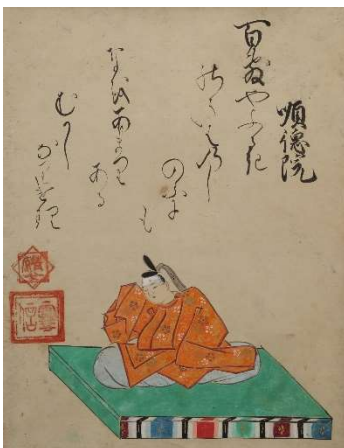 順徳院
百敷やふるき
のきはのし
のふに
も
なほあまり
ある
むかし
なりけり